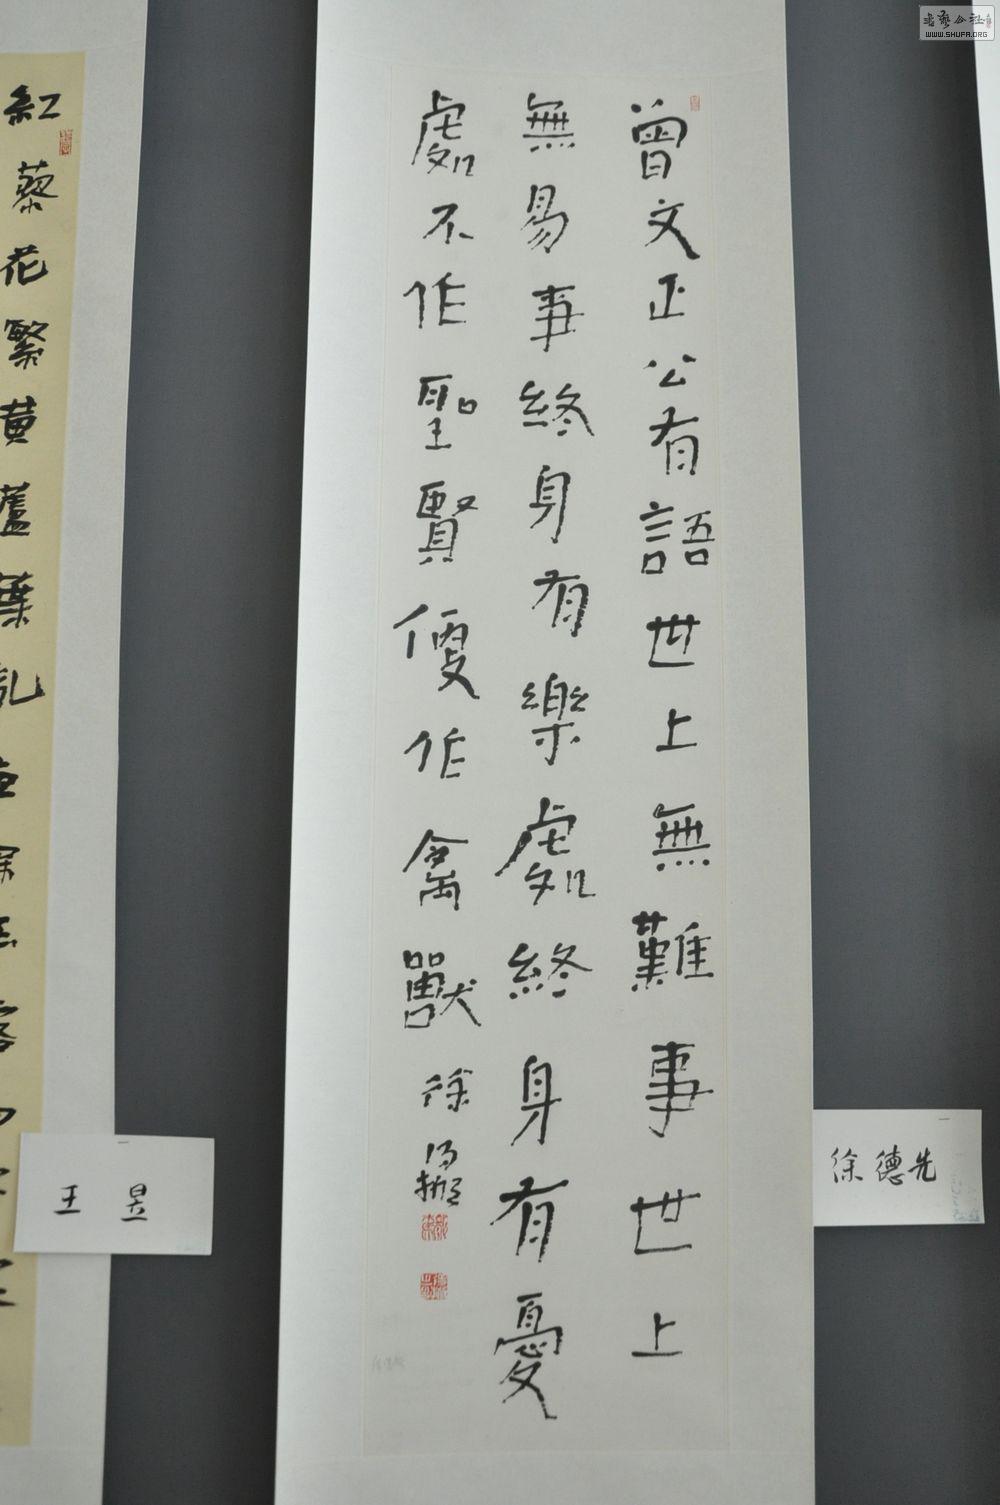 曾文正公有語世上無難事世上
無易事終身有樂處終身有憂
處不作聖賢便作禽獸徐
徐德先
紅藜花繁黄蘆葉乱
王昱
WWW.SHUFA.ORG